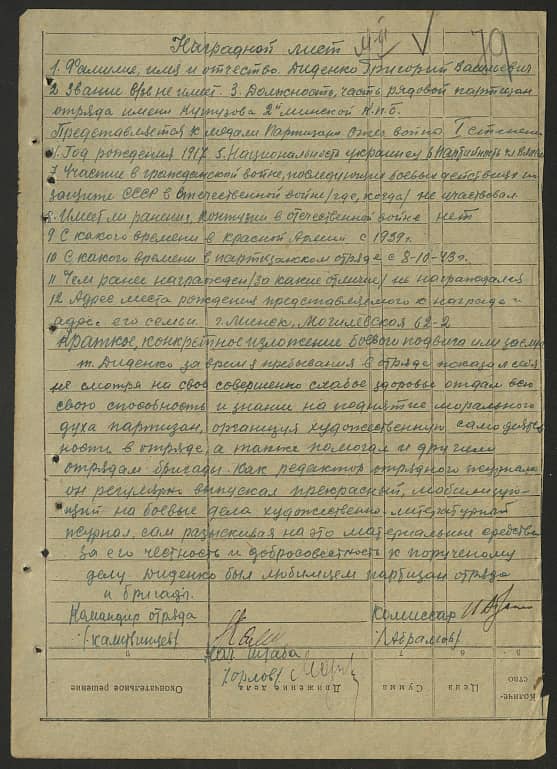 Наградной лист
79
1. Фамилия, имя и отчество Диденко Григорий Васильевич
2 Звание в/зв не имеет. 3. Должность, часть рядовой партизан
отряда имени Кутузова 2й минской п.п.б.
Представляется к медали Партизану Отеч. войны I степени
4. Год рождения 1917 5. Национальность украинец 6 Партийность чл
7 Участие в гражданской войне, последующих боевых действиях по
защите СССР в Отечественной войне /где, когда/ не участвовал
8. Имеет ли ранения, контузии в отечественной войне нет
9 С какого времени в Красной Армии с 1939г.
10 С какого времени в партизанском отряде с 8-10-43г.
11 Чем ранее награжден /за какие отличия/ не награждался
12 Адрес места рождения представляемого к награде и
адрес его семьи г. Минск, Могилевская 62-2
Краткое, конкретное изложение боевого подвига или заслуг
т. Диденко за время пребывания в отряде показал себя
не смотря на свое совершенно слабое здоровье отдал всю
свою способность и знании на поднятие морального
духа партизан, организуя художественную самодеятель
ности в отряде, а также помогал и другим
отрядам бригады. Как редактор отрядного журнала
он регулярно выпускал прекрасный, мобилизую-
щий на боевые дела художественно-литературный
журнал, сам разыскивая на это материальные средства
За его честность и добросовестность к порученому
делу Диденко был любимцем партизан отряда
и бригады.
Командир отряда Комиссар
/Абрамов/
Нач штаба
/Орлов/
Окончательное решение Движение дела Сумма Цена Количе-
ство